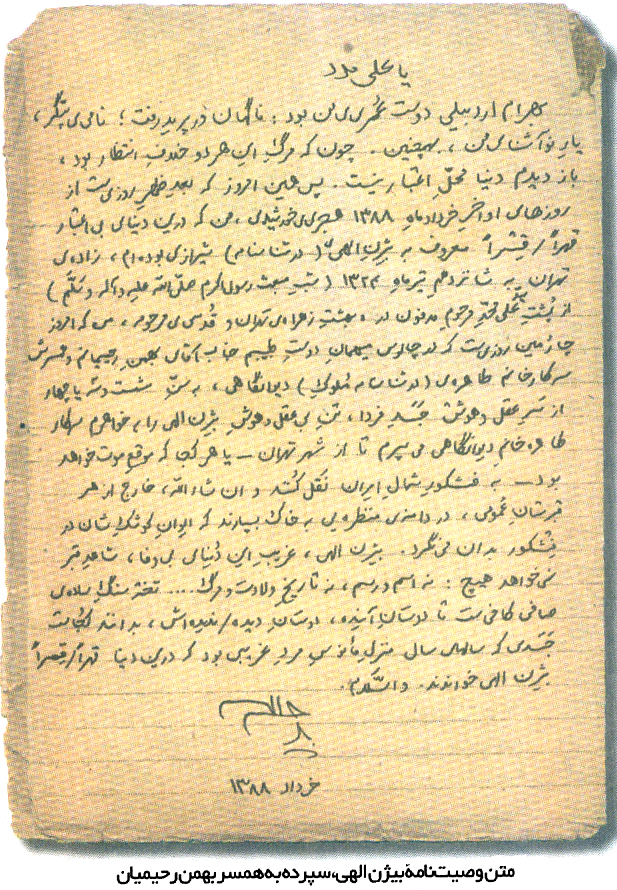 یا علی مدد
بهرام اردبیلی دوست عُمری‌ی من بود : ناگهان در پرید رفت ؛ نامی پتگر ،
یارِ نوآشنای من ، همچنین . چون که مرگِ این هر دو خلافِ انتظار بود ،
باز دیدم دنیا محلِّ اعتبار نیست . پس همین امروز که بعد ظهرِ روزی‌ست از
روزهای اواخرِ خرداد ماهِ ۱۳۸۸ هجری‌ی خورشیدی ، من که درین دنیای بی اعتبار
قهراً/قسراً معروف به بیژن الهی (در شناسنامه) شیرازی بوده‌ام ، زاده‌ی
تهران به شانزدهمِ تیرماهِ ۱۳۲۴ ( شبِ مبعث رسول اکرم صلّی الله علیه و آله و سَلَّم )
از پُشتِ علی محمّدِ مرحوم مدفون در بهشتِ زهرای تهران و قُدسی‌ی مرحومه ، می که امروز
چارمین روزی‌ست که در چالوس میهمان دوستِ طبیبم جناب آقای بهمن رحیمیان و همسرش
سرکار خانم طاهره‌ی (در شناسنامه مُلوک) دیوانگاهی ، به سنِّ شست و سه یا چهار
از سَرِ عقل و هوشْ جَسَدِ فردا ، تنِ بی عقل و هوشِ بیژن الهی را به خواهرم سرکار
طاهره خانمِ دیوانگاهی می سپرم تا از شهر تهران – یا هر کجا که موقعِ موت خواهد
بود – به فشکورِ شمال ایران نَقل کُنند و ان شاءالله ، خارج از هر
قبرستانِ عُمومی ، در دامنه‌ی منظره‌یی به خاک بسپارند که ایوانِ کوشکِ‌شان در
فشکور بدان می نگرد . بیژن الهی ، غریبِ این دُنیای بی وفا ، شاهدِ قبر
نمی خواهد هیچ : نه اسم و رسم ، نه تاریخِ ولادت و مرگ .... تخته سنگِ ساده‌ی
صافی کافی‌ست تا دوستانِ آینده ، دوستانِ دیده/ندیده‌اش ، بدانند کجاست
جَسَدی که سالهای سال منزلِ مأنوسِ مردِ غریبی بود که درین دنیا قهراً/قسراً
بیژن الهی خواندند . والسّلام .
خرداد ۱۳۸۸
متن وصیت‌نامهٔ بیژن الهی، سپرده به همسر بهمن رحیمیان